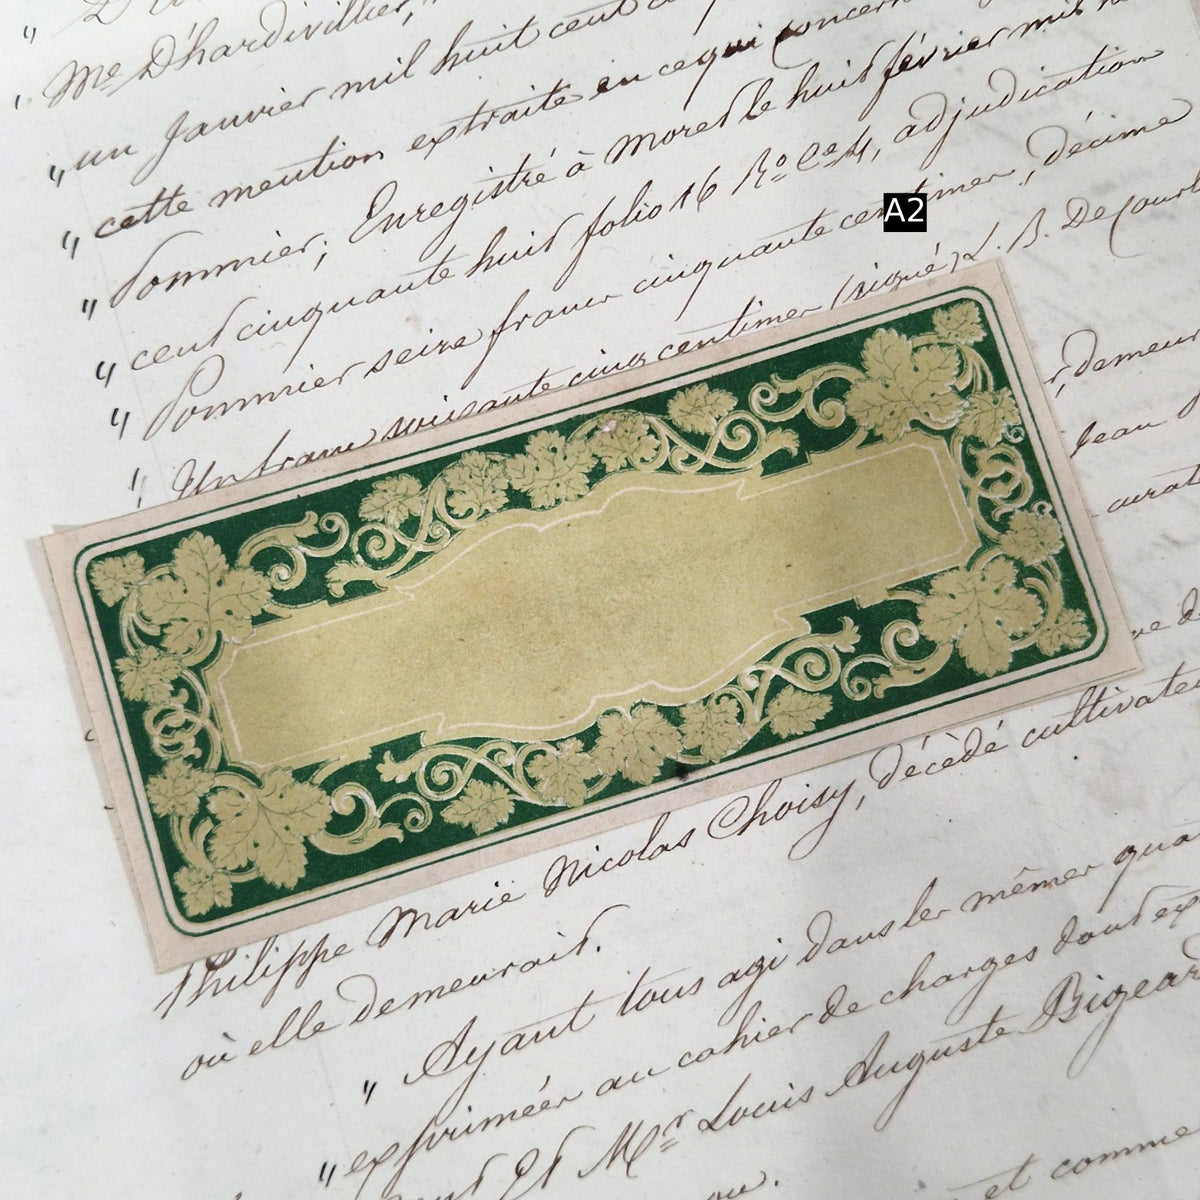 Me D'hardivillier,
„ un Janvier mil huit cent
„ cette mention extraite en ce qui concerne
„ Pommier; Enregistré à Moret le huit février mil
„ cent cinquante huit folio 16 Ro Ce 4, adjudication
„ Pommier seize francs cinquante centimes, décime
„ Un franc soixante cinq centimes (signé) L. B. De Court
A2
, demeur
Jean
curat
Philippe Marie Nicolas Choisy, décédé cultivateu
où elle demeurait.
„ Ayant tous agi dans les mêmes qua
„ exprimées au cahier de charges dont ex
Et Mr Louis Auguste Bigeard
et comme